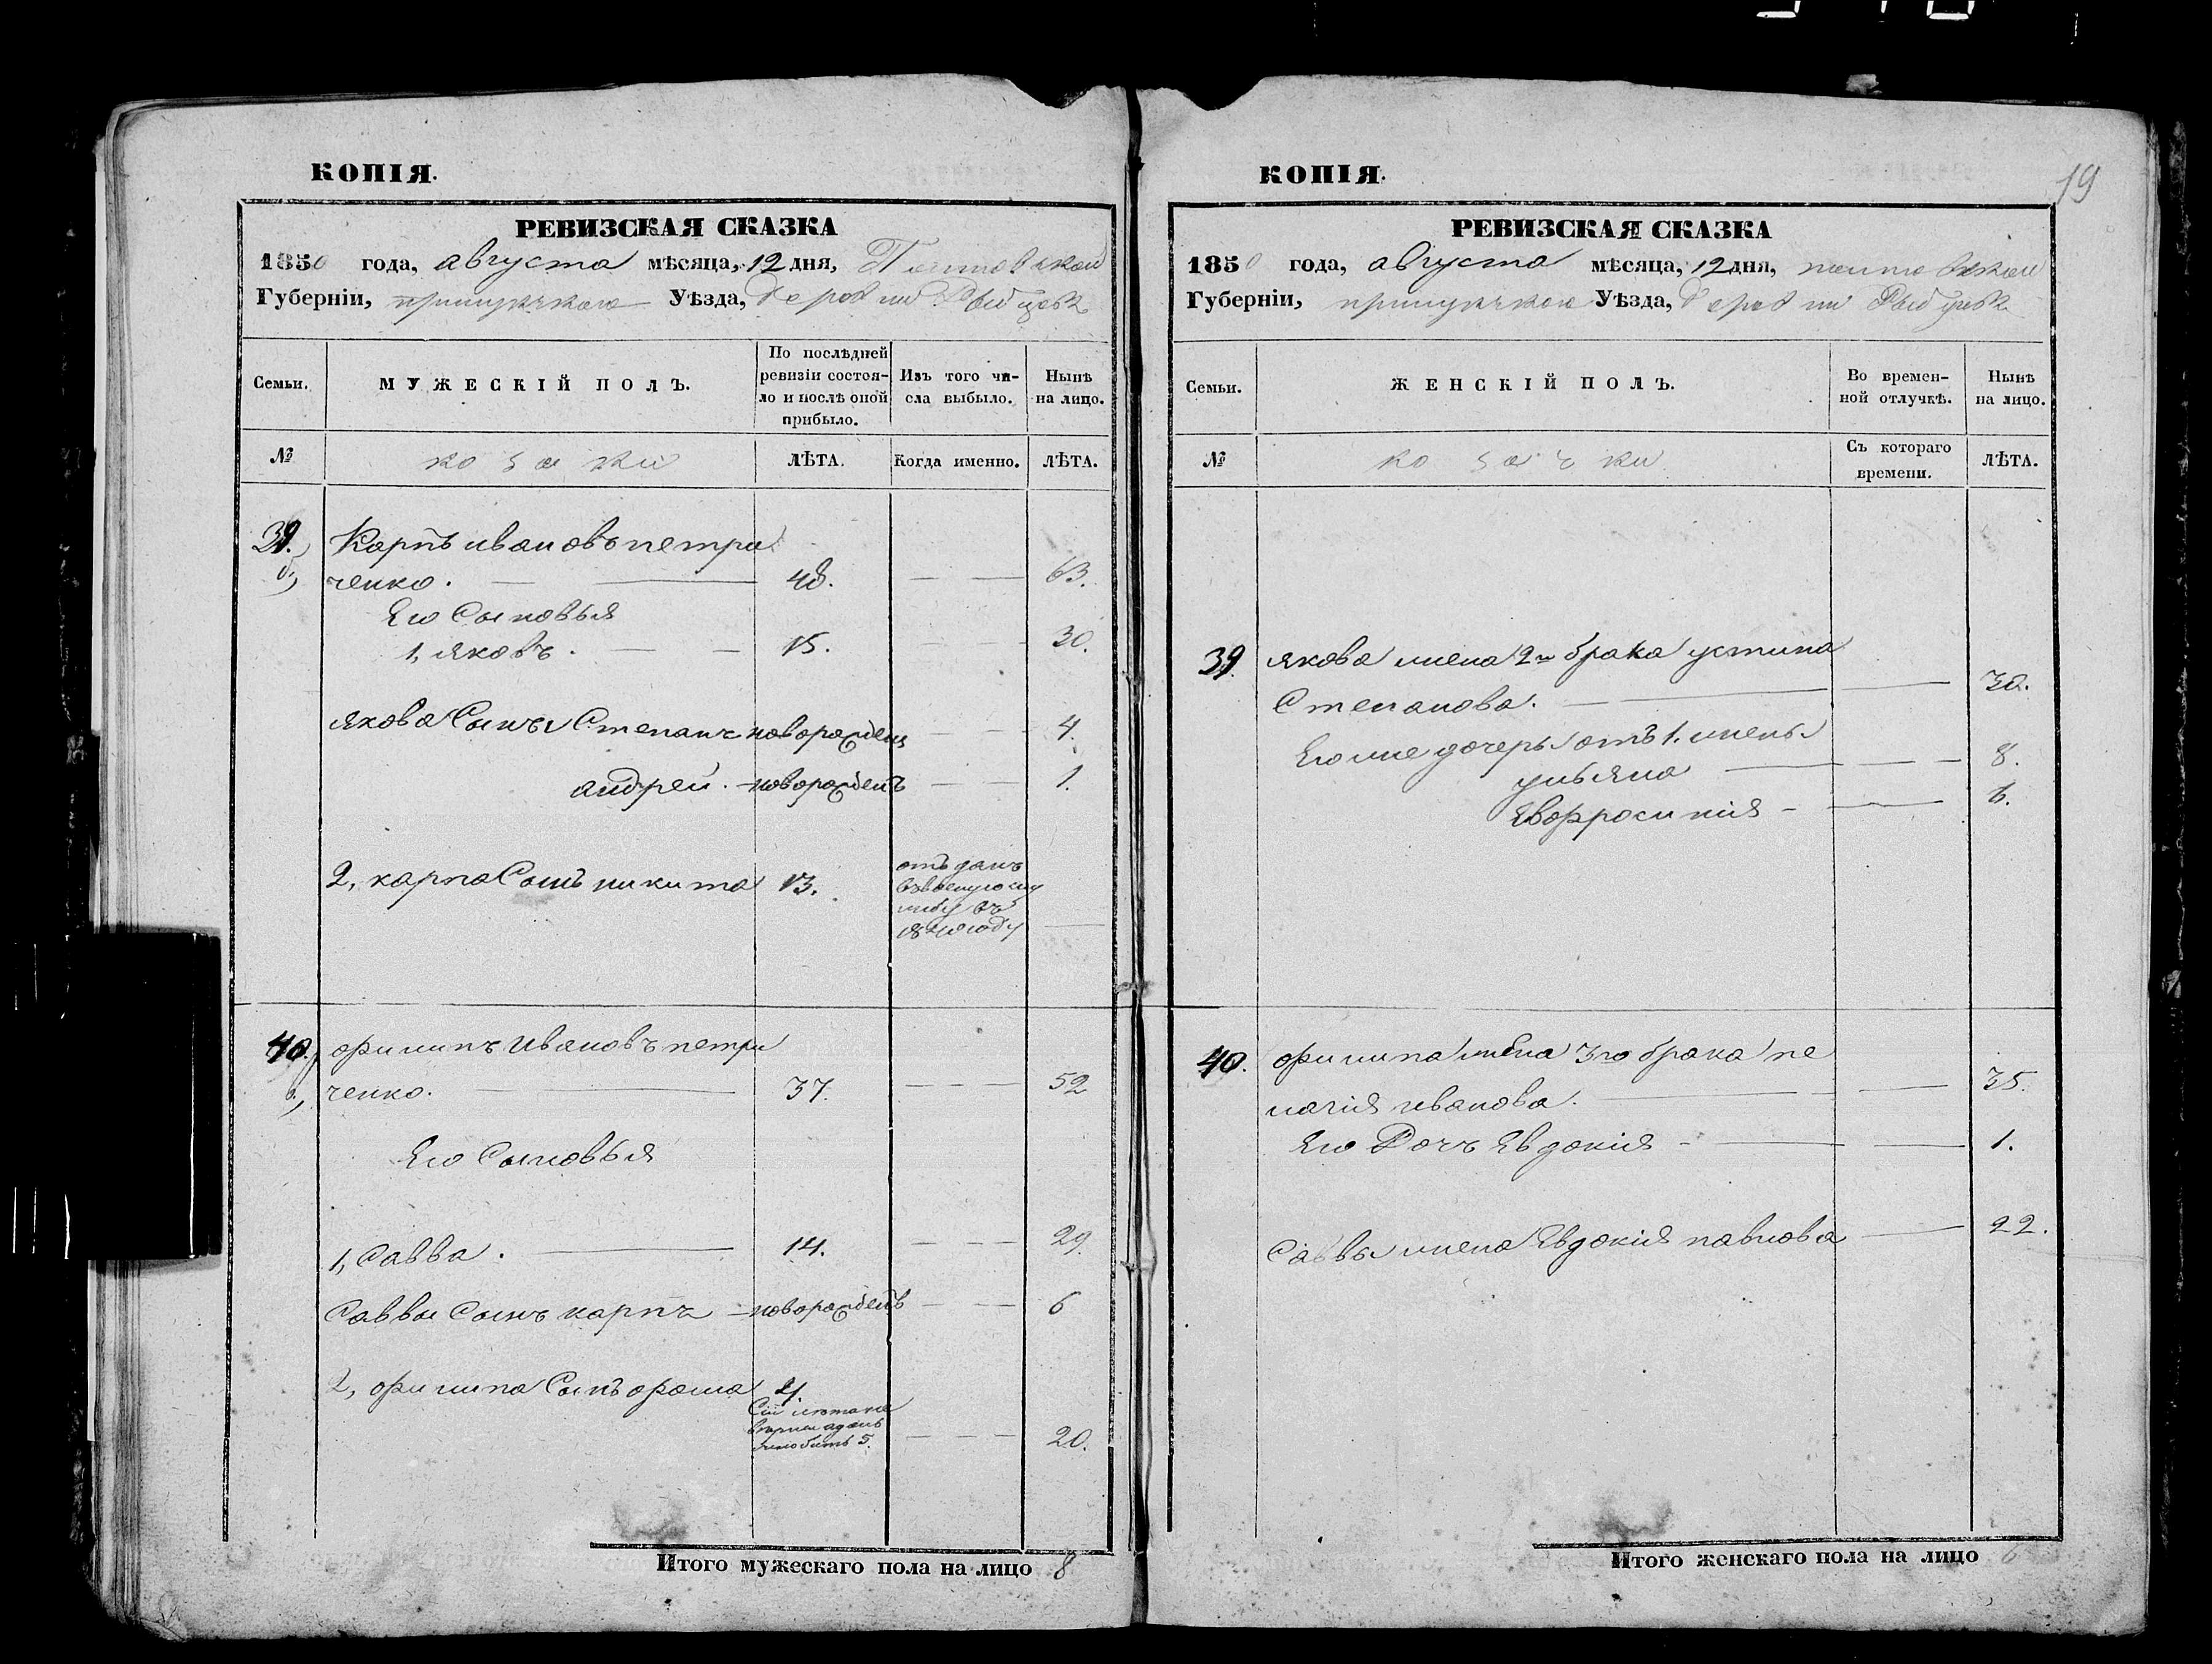 КОПІЯ.
РЕВИЗСКАЯ СКАЗКА
1850 года, августа мѣсяца, 12 дня, Полтавской
Губерніи, прилукскаго Уѣзда,
Семьи.
МУЖЕСКІЙ ПОЛЪ.
По послѣдней ревизіи состоя-
ло и послѣ оной прибыло.
Изъ того чи-
сла выбыло.
Нынѣ
на лицо.
№
козаки
ЛѢТА.
Когда именно.
ЛѢТА.
39. Карпъ ивановъ петри
ченко. 48. 63.
Его Сыновья
1, яковъ. 15. 30.
якова Сынъ Степанъ новорожден 4.
андрей. новорожденъ 1.
2, карпа Сынъ никита 13.
отъданъ
въ
40. филипъ Ивановъ петри
ченко. 37. 52
Его Сыновья
1, Савва. 14. 29.
Саввы Сынъ карпъ новорожденъ 6
2, филипа Сынъ фома 4.
20.
Итого мужескаго пола на лицо 8
КОПІЯ.
19
РЕВИЗСКАЯ СКАЗКА
1850 года, августа мѣсяца, 12 дня, полтавской
Губерніи, прилукскаго Уѣзда,
Семьи.
ЖЕНСКІЙ ПОЛЪ.
Во времен-
ной отлучкѣ.
Нынѣ
на лицо.
№
козачки
Съ котораго
времени.
ЛѢТА.
39. якова жена 2го брака устина
Степанова. 30.
Его же дочеры отъ 1. жены
ульяна 8.
Евфросинія 6.
40. филипа жена 3го брака пе
лагія иванова. 35.
Его Дочъ Евдокія 1.
Саввы жена Евдокія павлова 22.
Итого женскаго пола на лицо 6